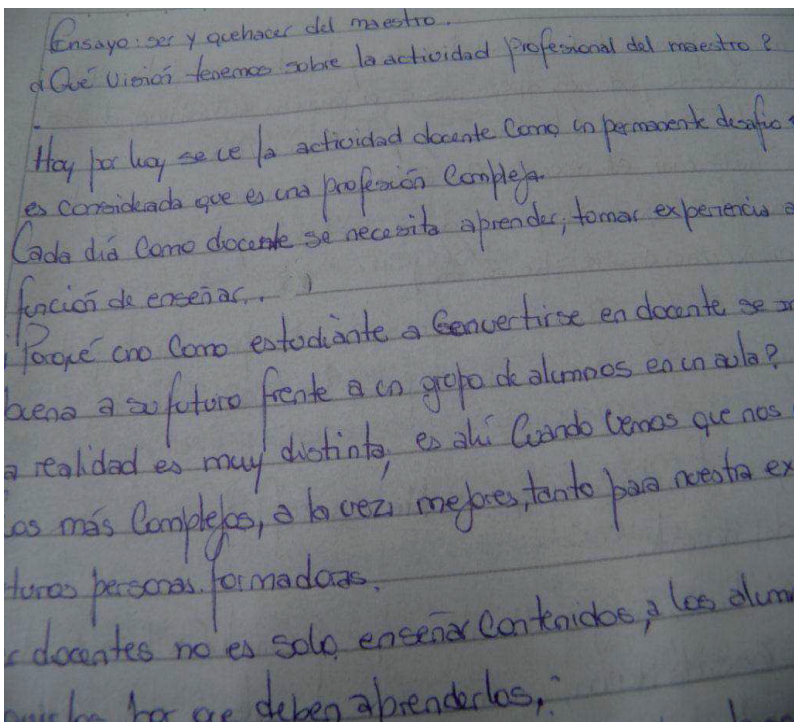 Ensayo: ser y quehacer del maestro.
¿Qué visión tenemos sobre la actividad profesional del maestro?
Hoy por hoy se ve la actividad docente como un permanente desafío
es considerada que es una profesión compleja.
Cada día como docente se necesita aprender, tomar experiencia a
función de enseñar.
¿Porqué uno como estudiante a convertirse en docente se
buena a su futuro frente a un grupo de alumnos en un aula?
a realidad es muy distinta, es ahí cuando vemos que nos
os más complejos, a la vez, mejores, tanto para nuestra ex
turas personas formadoras.
docentes no es solo enseñar contenidos, a los alum
por que deben aprenderlos,